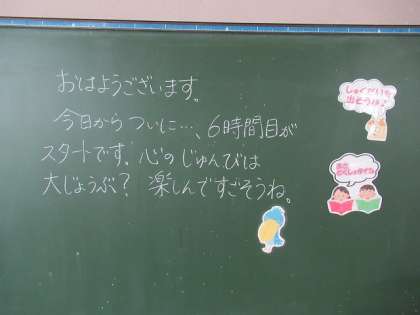 おはようございます。
今日からついに…、6時間目が
スタートです。心のじゅんびは
大じょうぶ？ 楽しんですごそうね。
しゅくだいを
出そうね♪
あさ
どくしょタイム